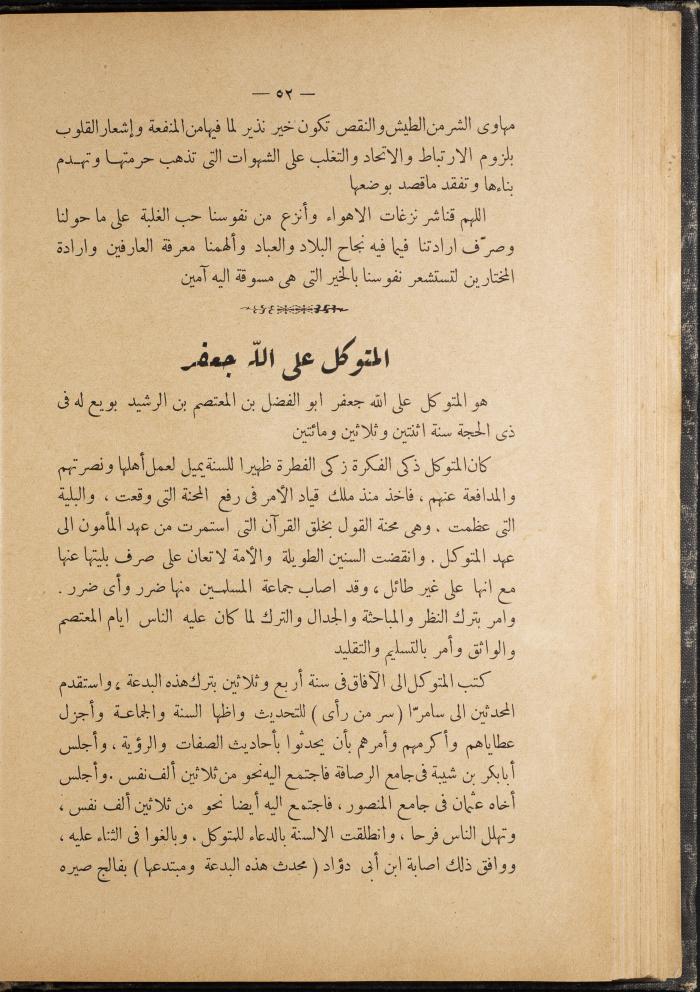 — ٥٢ —
مهاوى الشر من الطيش والنقص تكون خير نذير لما فيها من المنفعة وإشعار القلوب
بلزوم الارتباط والاتحاد والتغلب على الشهوات التى تذهب حرمتها وتهدم
بناءها وتفقد ماقصد بوضعها
اللهم قنا شر نزغات الاهواء وأنزع من نفوسنا حب الغلبة على ما حولنا
وصرّف ارادتنا فيما فيه نجاح البلاد والعباد وألهمنا معرفة العارفين وارادة
المختارين لتستشعر نفوسنا بالخير التى هى مسوقة اليه آمين
المتوكل على الله جعفر
هو المتوكل على الله جعفر ابو الفضل بن المعتصم بن الرشيد بويع له فى
ذى الحجة سنة اثنتين وثلاثين ومائتين
كان المتوكل ذكى الفكرة زكى الفطرة ظهيرا للسنة يميل لعمل أهلها ونصرتهم
والمدافعة عنهم ، فاخذ منذ ملك قياد الأمر فى رفع المحنة التى وقعت ، والبلية
التى عظمت . وهى محنة القول بخلق القرآن التى استمرت من عهد المأمون الى
عهد المتوكل . وانقضت السنين الطويلة والأمة لا تعان على صرف بليتها عنها
مع انها على غير طائل ، وقد اصاب جماعة المسلمين منها ضرر وأى ضرر .
وامر بترك النظر والمباحثة والجدال والترك لما كان عليه الناس ايام المعتصم
والواثق وأمر بالتسليم والتقليد
كتب المتوكل الى الآفاق فى سنة أربع وثلاثين بترك هذه البدعة ، واستقدم
المحدثين الى سامرّا ( سر من رأى ) للتحديث واظها السنة والجماعة وأجزل
عطاياهم وأكرمهم وأمرهم بأن يحدثوا بأحاديث الصفات والرؤية ، وأجلس
أبابكر بن شيبة فى جامع الرصافة فاجتمع اليه نحو من ثلاثين ألف نفس . وأجلس
أخاه عثمان فى جامع المنصور ، فاجتمع اليه أيضا نحو من ثلاثين ألف نفس ،
وتهلل الناس فرحا ، وانطلقت الالسنة بالدعاء للمتوكل ، وبالغوا فى الثناء عليه ،
ووافق ذلك اصابة ابن أبى دؤاد ( محدث هذه البدعة ومبتدعها ) بفالج صيره